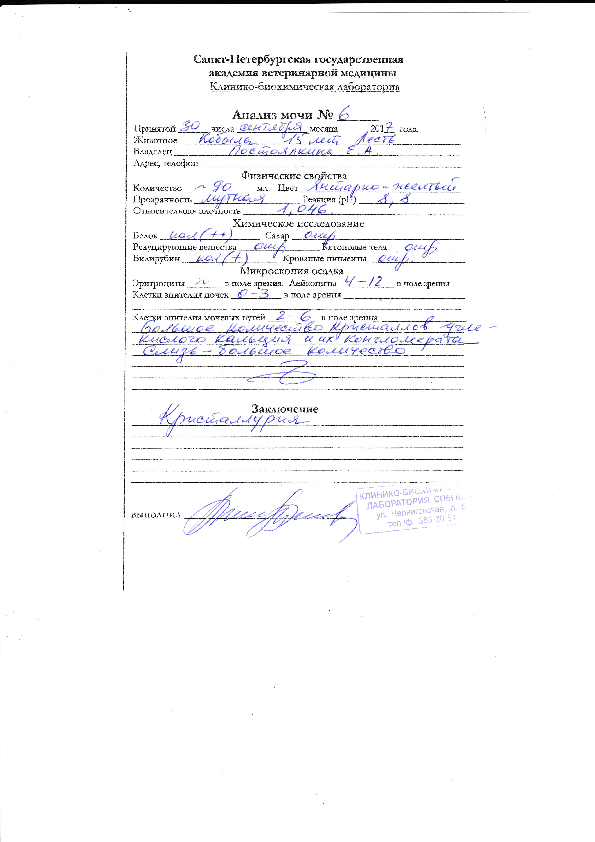 Санкт-Петербургская государственная
академия ветеринарной медицины
Клинико-биохимическая лаборатория
Анализ мочи № 6
Принятой 30 числа сентября месяца 2017 года
Животное Кобыла 15 лет Лесть
Владелец Е А
Адрес, телефон
Физические свойства
Количество ~ 90 мл. Цвет Янтарно-желтый
Прозрачность мутная Реакция (pH) 8,8
Относительная плотность 1,046
Химическое исследование
Белок пол(++) Сахар отр
Редуцирующие вещества отр Кетоновые тела отр
Билирубин пол(+) Кровяные пигменты отр.
Микроскопия осадка
Эритроциты в поле зрения. Лейкоциты 4-12 в поле зрения
Клетки эпителия почек 0-3 в поле зрения
Клетки эпителия мочевых путей 2 6 в поле зрения
Большое количество кристаллов угле-
кислого кальция и их конгломерата
Слизь - большое количество
Заключение
Кристаллурия
выполнил
КЛИНИКО-БИОХИМ
ЛАБОРАТОРИЯ СПбГА
ул. Черниговская, д. 5
тел/ф. 388-30-51